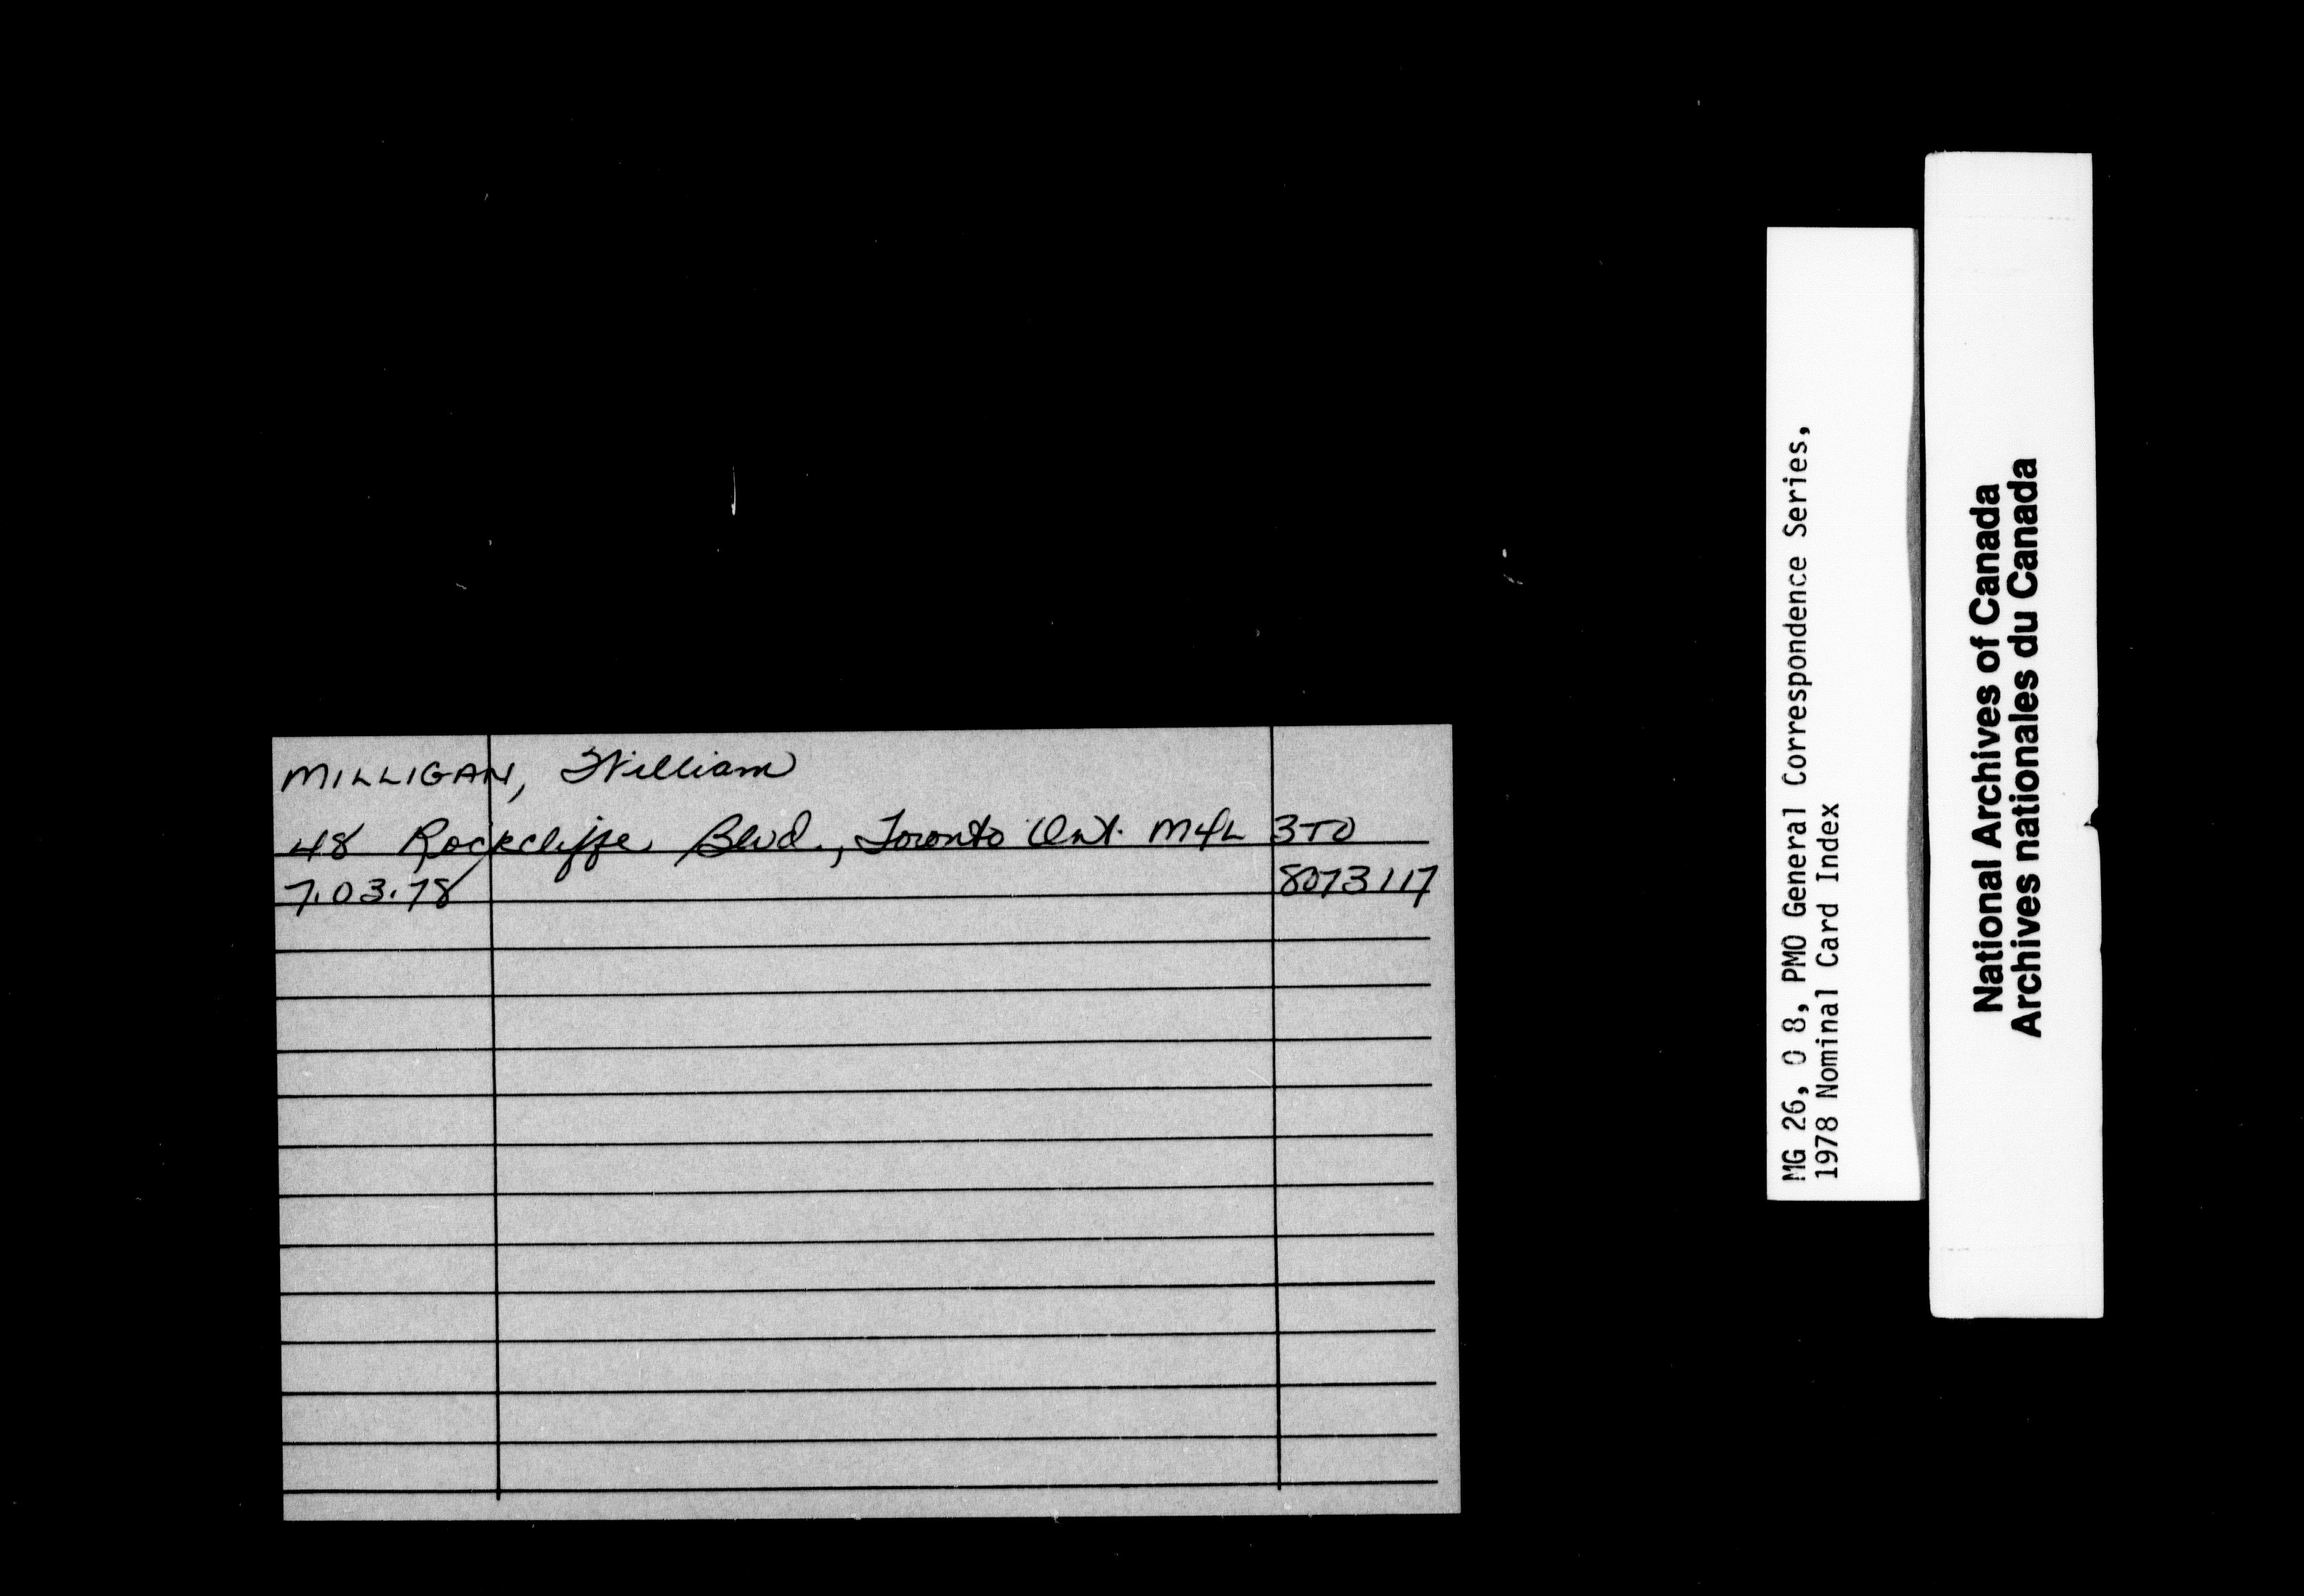 MILLIGAN, William
48 Rockcliffe Blvd., Toronto Ont. M4L 3T0
7.03.78 8073117
MG 26, O 8, PMO General Correspondence Series,
1978 Nominal Card Index
National Archives of Canada
Archives nationales du Canada